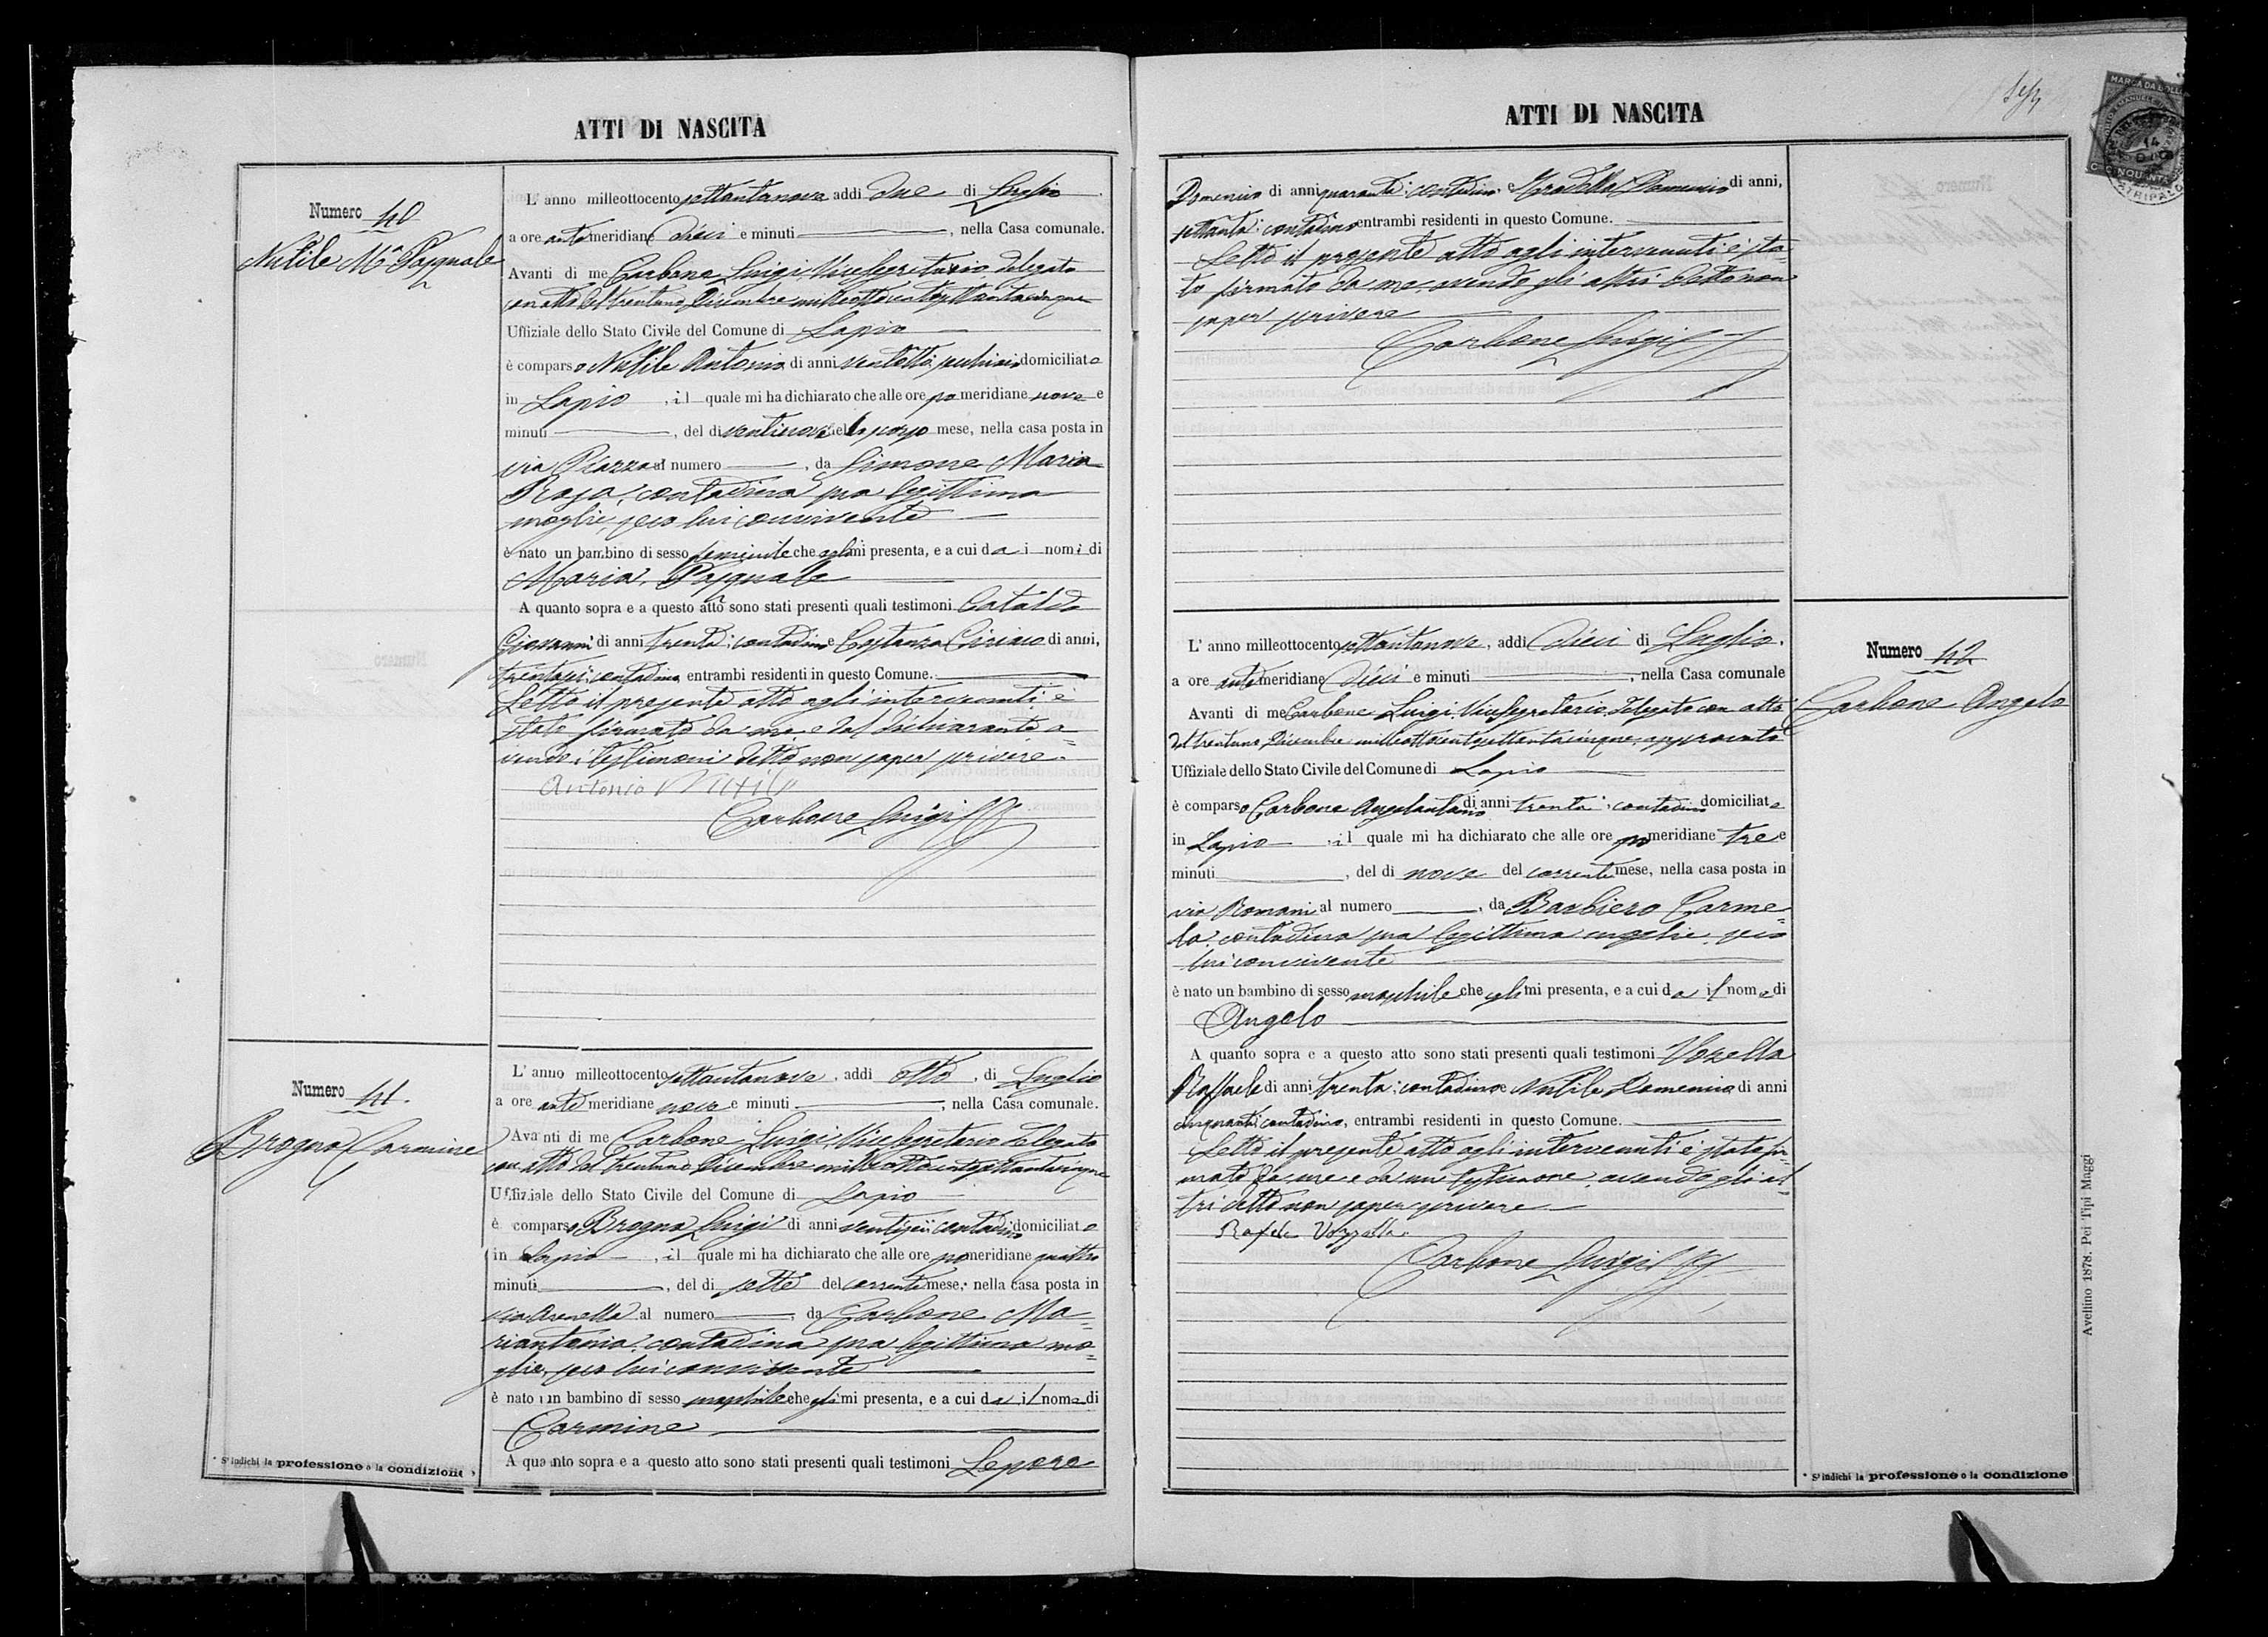 ATTI DI NASCITA
Numero 40
Nutile Mª Pasquale
L' anno milleottocento settantanove addì due di Luglio
a ore antemeridiane dieci e minuti , nella Casa comunale.
Avanti di me Carbone Luigi, Vice Segretario delegato
con atto del trentuno Dicembre milleottocentosettantacinque
Uffiziale dello Stato Civile del Comune di Lapio
è comparso Nutile Antonio di anni domiciliato
in Lapio , il quale mi ha dichiarato che alle ore pomeridiane nove e
minuti , del dì ventinove dello scorso mese, nella casa posta in
via Piazza al numero , da Simone Maria
Rosa, contadina sua legittima
moglie, seco lui convivente
è nato un bambino di sesso femminile che egli mi presenta, e a cui da i nomi di
Maria, Pasquale
A quanto sopra e a questo atto sono stati presenti quali testimoni Cataldo
Giovanni di anni trenta, contadino e Costanza Ciriaco di anni,
trentasei contadino, entrambi residenti in questo Comune.
Letto il presente atto agli intervenuti è
stato firmato da me, e dal dichiarante a=
vendo i testimoni detto non saper scrivere.
Antonio Nutile
Carbone Luigi
Numero 41.
Brogna Carmine
L' anno milleottocento settantanove, addì otto, di Luglio
a ore antemeridiane nove e minuti , nella Casa comunale.
Avanti di me Carbone Luigi, Vice Segretario delegato
con atto del trentuno Dicembre milleottocentosettantacinque
Uffiziale dello Stato Civile del Comune di Lapio
è comparso Brogna Luigi di anni ventisei contadino domiciliato
in Lapio , il quale mi ha dichiarato che alle ore pomeridiane quattro
minuti , del dì sette del corrente mese, nella casa posta in
via Arenella al numero da Carbone Ma=
riantonia, contadina sua legittima mo=
glie, seco lui convivente
è nato un bambino di sesso maschile che egli mi presenta, e a cui da il nome di
Carmine
A quanto sopra e a questo atto sono stati presenti quali testimoni Lepore
* S'indichi la professione o la condizione
ATTI DI NASCITA
MARCA DA BOLLO
Domenico di anni quaranta, contadino, e Domenico di anni,
settanta, contadino entrambi residenti in questo Comune.
Letto il presente atto agli intervenuti è sta=
to firmato da me avendo gli altri detto non
saper scrivere
Carbone Luigi
Numero 42
Carbone Angelo
L' anno milleottocento settantanove, addì dieci di Luglio,
a ore antemeridiane dieci e minuti , nella Casa comunale
Avanti di me Carbone Luigi, Vice Segretario delegato con atto
del trentuno Dicembre milleottocentosettantacinque, approvato
Uffiziale dello Stato Civile del Comune di Lapio
è comparso Carbone Angelantonio di anni trenta, contadino domiciliato
in Lapio , il quale mi ha dichiarato che alle ore pomeridiane tre e
minuti , del dì nove del corrente mese, nella casa posta in
via Romani al numero , da Barbiero Carme=
la, contadina sua legittima moglie, seco
lui convivente
è nato un bambino di sesso maschile che egli mi presenta, e a cui da il nome di
Angelo
A quanto sopra e a questo atto sono stati presenti quali testimoni Vozella
Raffaele di anni trenta, contadino e Nutile Domenico di anni
cinquanta, contadino, entrambi residenti in questo Comune.
Letto il presente atto agli intervenuti è stato fir=
mato da me e da un testimone avendo gli al=
tri detto non saper scrivere
Rafele Vozzella
Carbone Luigi
* S'indichi la professione o la condizione
Avellino 1878. Pei Tipi Maggi